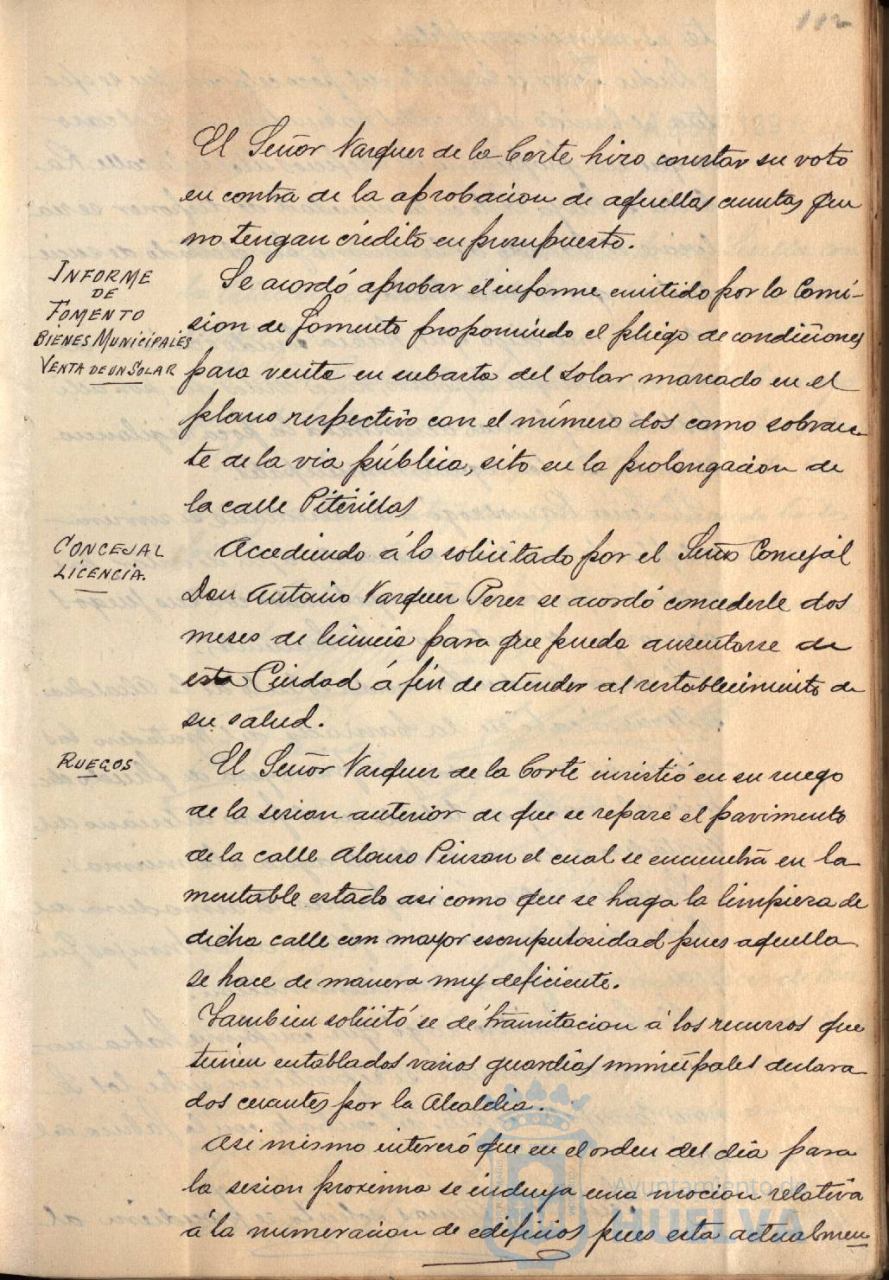 112
El Señor Vazquez de la Corte hizo constar su voto
en contra de la aprobacion de aquellas cuentas que
no tengan crédito en presupuesto.
INFORME
DE
FOMENTO
BIENES MUNICIPALES
VENTA DE UN SOLAR
Se acordó aprobar el informe emitido por la Comi-
sion de fomento proponiendo el pliego de condiciones
para venta en subasta del solar marcado en el
plano respectivo con el número dos como sobran-
te de la via pública, sito en la prolongacion de
la calle Piterillas
CONCEJAL
LICENCIA.
Accediendo á lo solicitado por el Señor Concejal
Don Antonio Vazquez Perez se acordó concederle dos
meses de licencia para que pueda ausentarse de
esta Ciudad á fin de atender al restablecimiento de
su salud.
RUEGOS
El Señor Vazquez de la Corte insistió en su ruego
de la sesion anterior de que se repare el pavimento
de la calle Alonso Pinzon el cual se encuentra en la
mentable estado asi como que se haga la limpieza de
dicha calle con mayor escrupulosidad pues aquella
se hace de manera muy deficiente.
Tambien solicitó se dé tramitacion á los recursos que
tienen entablados varios guardias municipales declara
dos cesantes por la Alcaldia.
Asi mismo interesó que en el orden del dia para
la sesion proxima se incluya una mocion relativa
á la numeracion de edificios pues esta actualmen
Ayuntamiento de
HUELVA